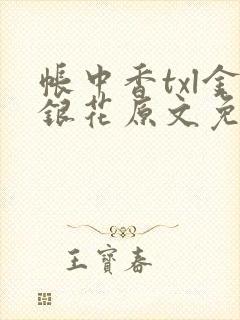 帳中香txl金
銀花原文免
王寶春